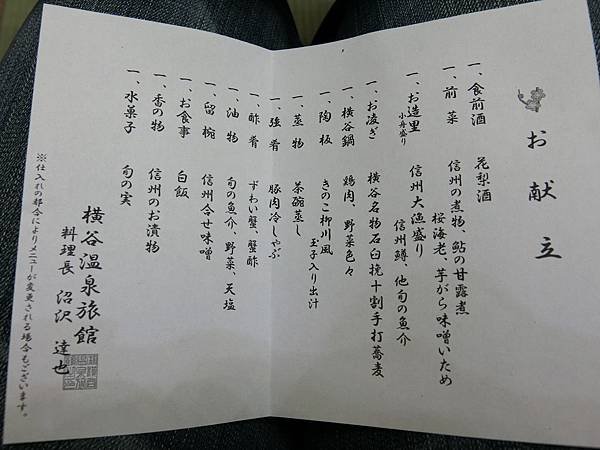 お献立
一、食前酒　花梨酒
一、前菜　信州の煮物、鮎の甘露煮
桜海老、芋がら味噌いため
一、お造里　信州大漁盛り
小舟盛り　信州鱒、他旬の魚介
一、お凌ぎ　横谷名物石臼挽十割手打蕎麦
一、横谷鍋　鶏肉、野菜色々
一、陶板　きのこ柳川風
玉子入り出汁
一、蒸物　茶碗蒸し
一、強肴　豚肉冷しゃぶ
一、酢肴　ずわい蟹、蟹酢
一、油物　旬の魚介、野菜、天塩
一、留椀　信州合せ味噌
一、お食事　白飯
一、香の物　信州のお漬物
一、水菓子　旬の実
横谷温泉旅館
料理長　沼沢　達也
※仕入れの都合によりメニューが変更される場合もございます。